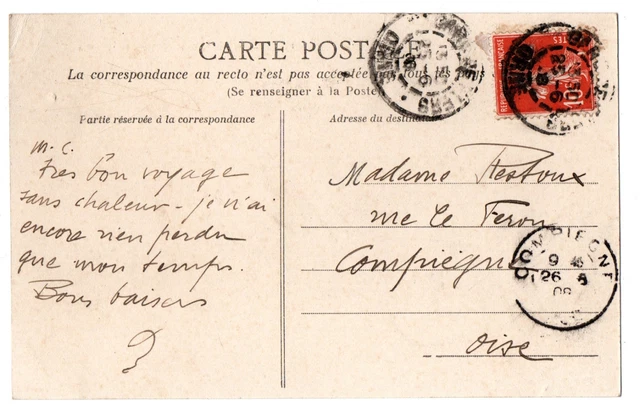 CARTE POSTALE
La correspondance au recto n'est pas acceptée par tous les pays
(Se renseigner à la Poste)
Partie réservée à la correspondance
Adresse du destinataire
M. C.
très bon voyage
sans chaleur - je n'ai
encore rien perdu
que mon temps.
Bons baisers
Madame Restoux
rue le Feron
Compiègne
Oise
COMPIEGNE
26